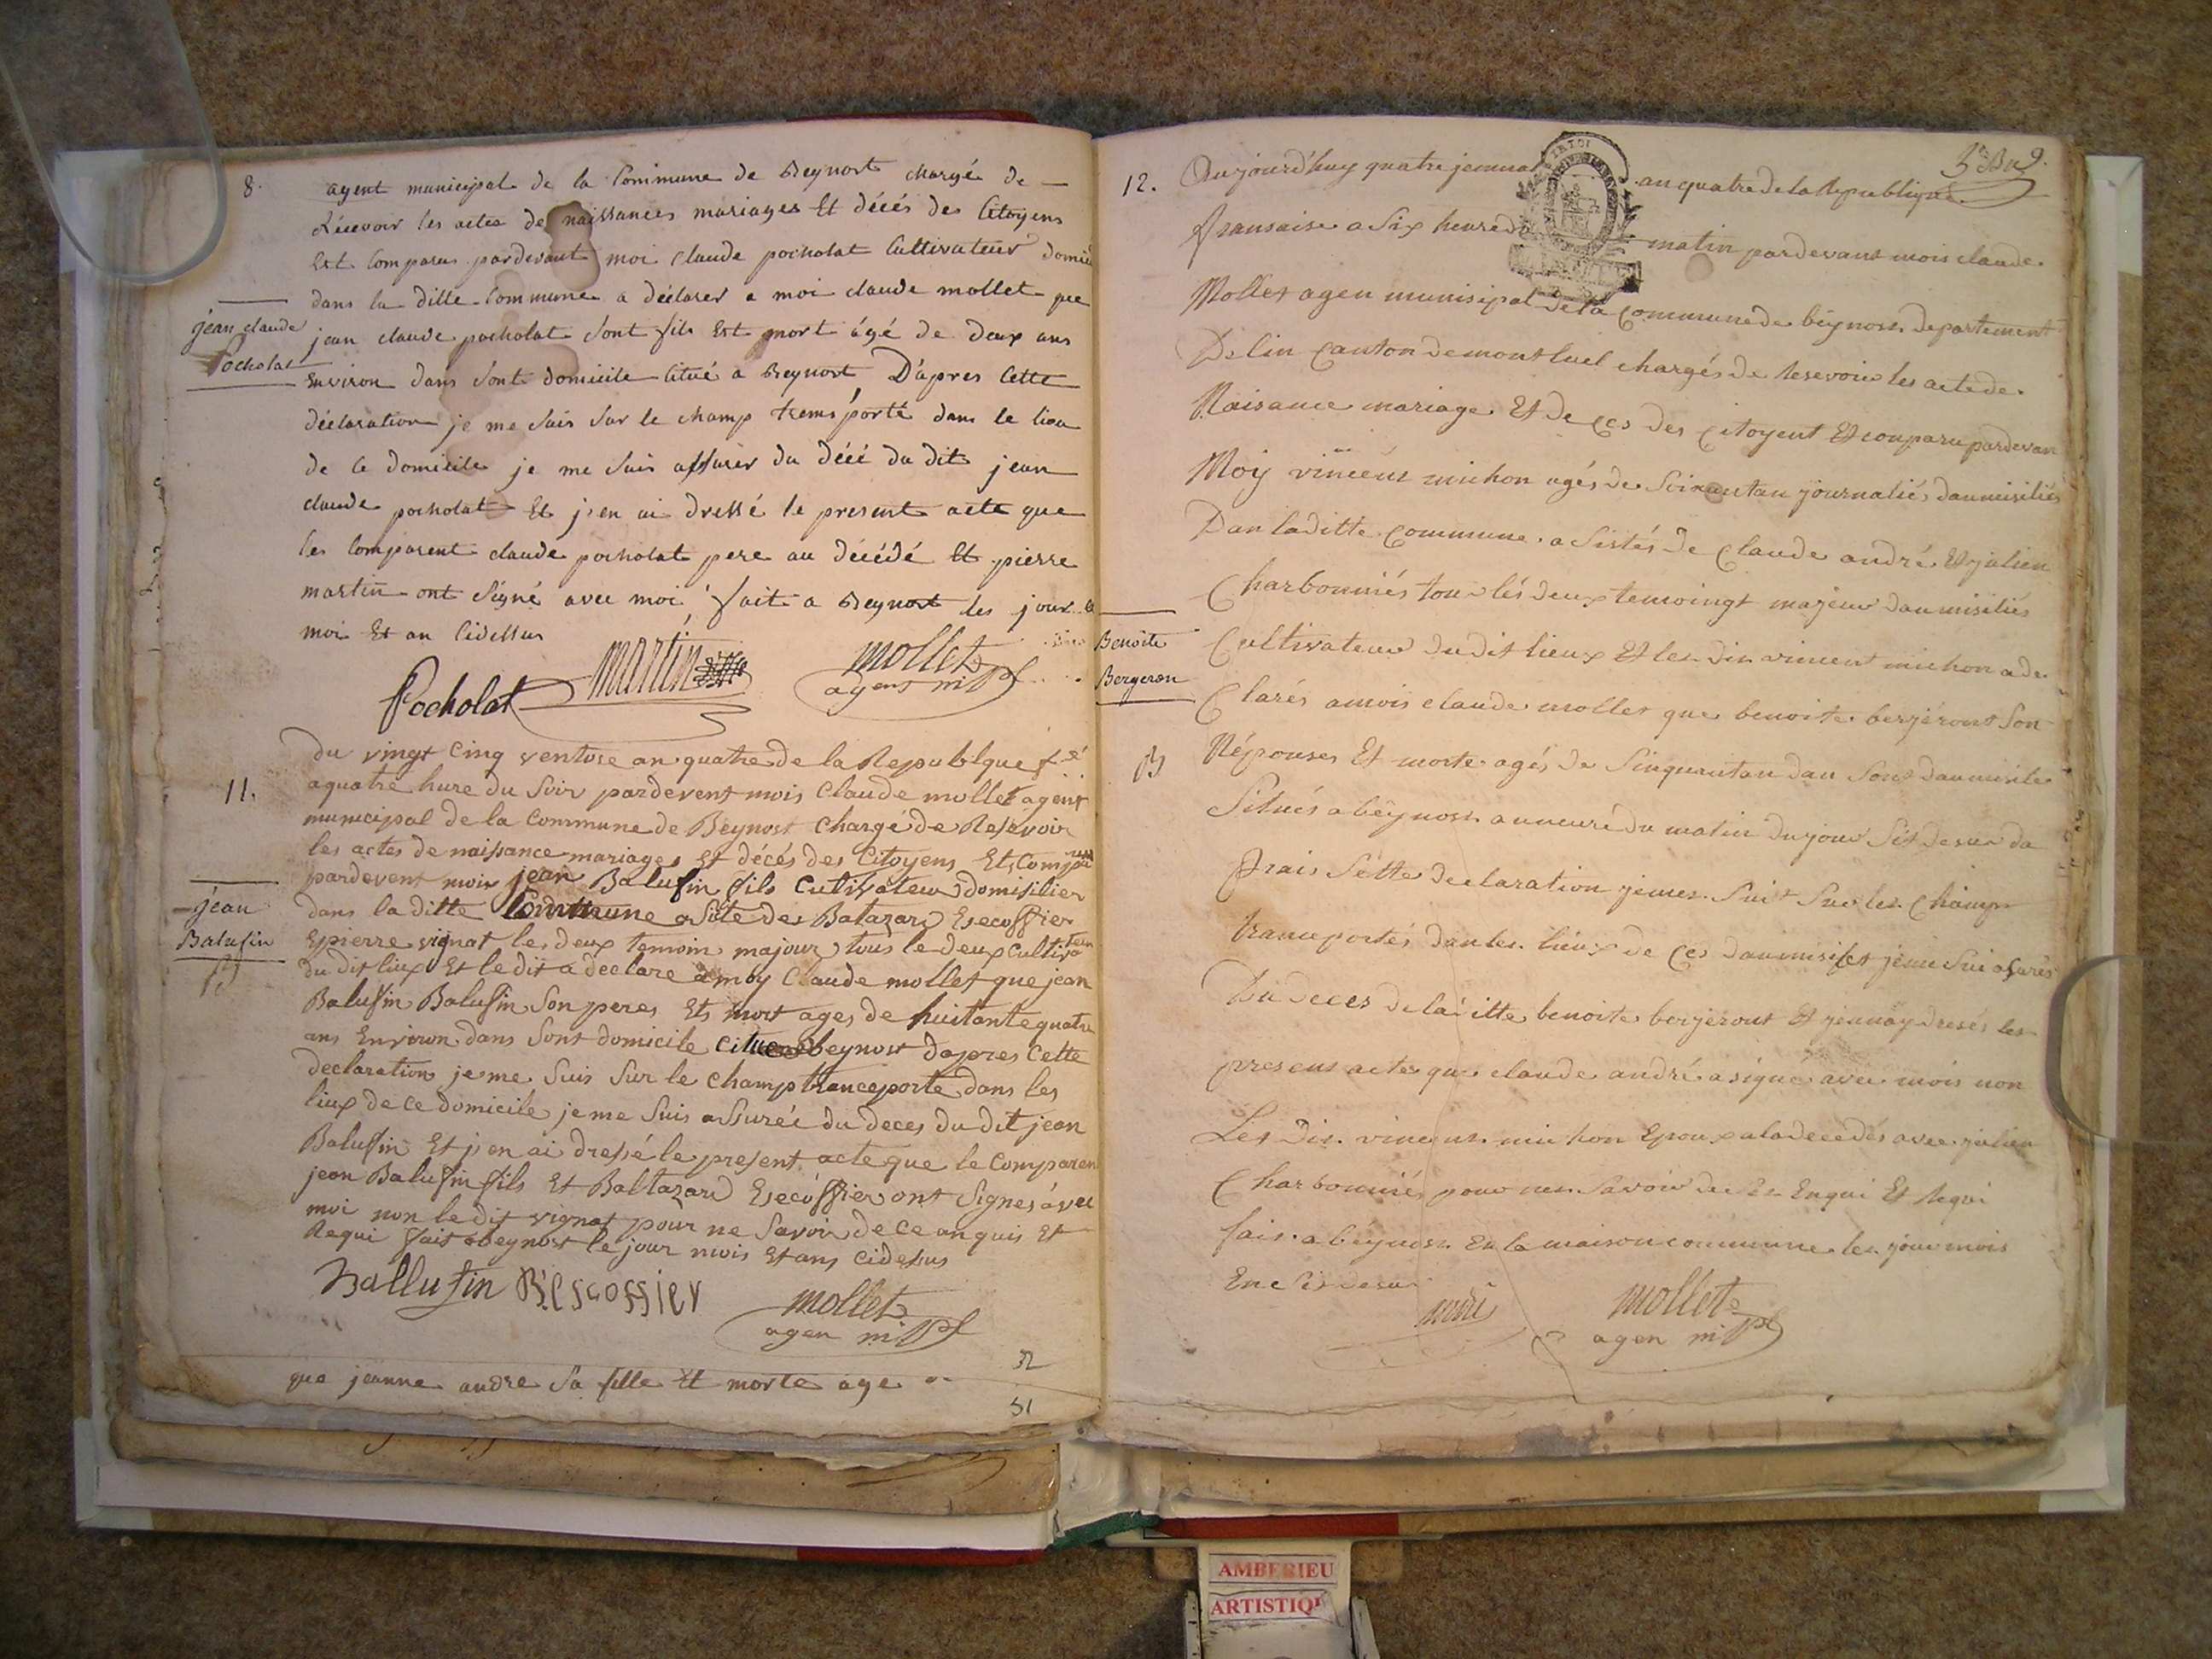 8.
agent municipal de la Commune de Beynost chargé de
Récevoir les actes de naissances mariages Et décés des Citoyens
Est Comparu pardevant moi claude pocholat Cultivateur domici
dans la ditte Commune a déclarer a moi claude mollet que
jean claude
Pocholat
jean claude pocholat sont fils Est mort ágé de deux ans
Environ dans sont domicile Citué a Beynost D'apres Cette
déclaration je me suis sur le champ trems'porté dans le lieu
de ce domicile je me suis assurer du décé du dit jean
claude pocholat Et j'en ai dressé le present acte que
les Comparent claude pocholat pere au décédé Et pierre
martin ont signé avec moi fait a Beynost les jour
moi Et an Cidessus
Pocholat martin mollet
agent mpl
11.
du vingt Cinq ventose an quatre de la Republque
aquatre hure du Soir pardevent mois Claude mollet agent
municipal de la Commune de Beynost Chargé de Resevoir
les actes de naissance mariages Et décés des Citoyens Et Comparu
pardevent mois jean Balufin fils Cutivateur domisilier
jean
Balufin
dans la ditte Commune asiste de Batazard Esecoffier
Epierre vignat les deux temoin majour tous le deux Cultivateur
du dit liux Et le dit a declare a moy Claude mollet que jean
Balufin Balufin Son peres Ets mort ages de huitante quatre
ans Environ dans Sont domicile Citue beynost dapres Cette
declaration je me Suis Sur le Champ tranceporte dans les
liux de Ce domicile je me Suis assurée du deces du dit jean
Balufin Et j en ai dressé le present acte que le Comparen
jean Balufin fils Et Baltazard Esecoffier ont Signes avec
moi non le dit vignat pour ne Savoir de Ce anquis Et
Requi fait abeynost le jour mois Et ans Cidessus
Ballufin B'escoffier mollet
agen mpl
que jeanne andre Sa fille Et morte age
52
51
12.
Aujourd'huy quatre jermnal an quatre de la Republique
fransaise a Six heure du matin pardevant mois claude
Mollet agen munisipal de la Commune de béynost departement
De lin Canton de montluel chargés de Resevoir les acte de
Naisance mariage Et de Ces des Citoyent Et conparu pardevan
Moiy vincent michon agés de Soixantan journaliés daumisiliés
Dan laditte Commune asistés de Claude andré Et julien
Charbonniés tous lés deux temoingt majeur daumisiliés
Benoite
Bergeron
Cultivateur du dit lieux Et les dis vincent michon a de
Clarés a mois claude mollet que benoite berjéront Son
Népouses Et morte agés de Sinquantan dan Sont daumisile
Situés a béynost a uneuré du matin du jour Sit desur da
prais Sétte declaration jemes Suist Sur les Champ
tranceportés dan les lieux de Ces daumisiles jeme Sui asurés
Du deces de la ditte benoite berjeront Et jennay dresés les
present acte que claude andré a signé avec mois non
Les Dis vincent michon Epoux a la decedés avec julien
Charbonniés pour nes Savoir de Enqui Et Requi
fais a béynost En la maison commune les jour mois
En e Sis desur
mollet
agen mpl
AMBERIEU
ARTISTIQ